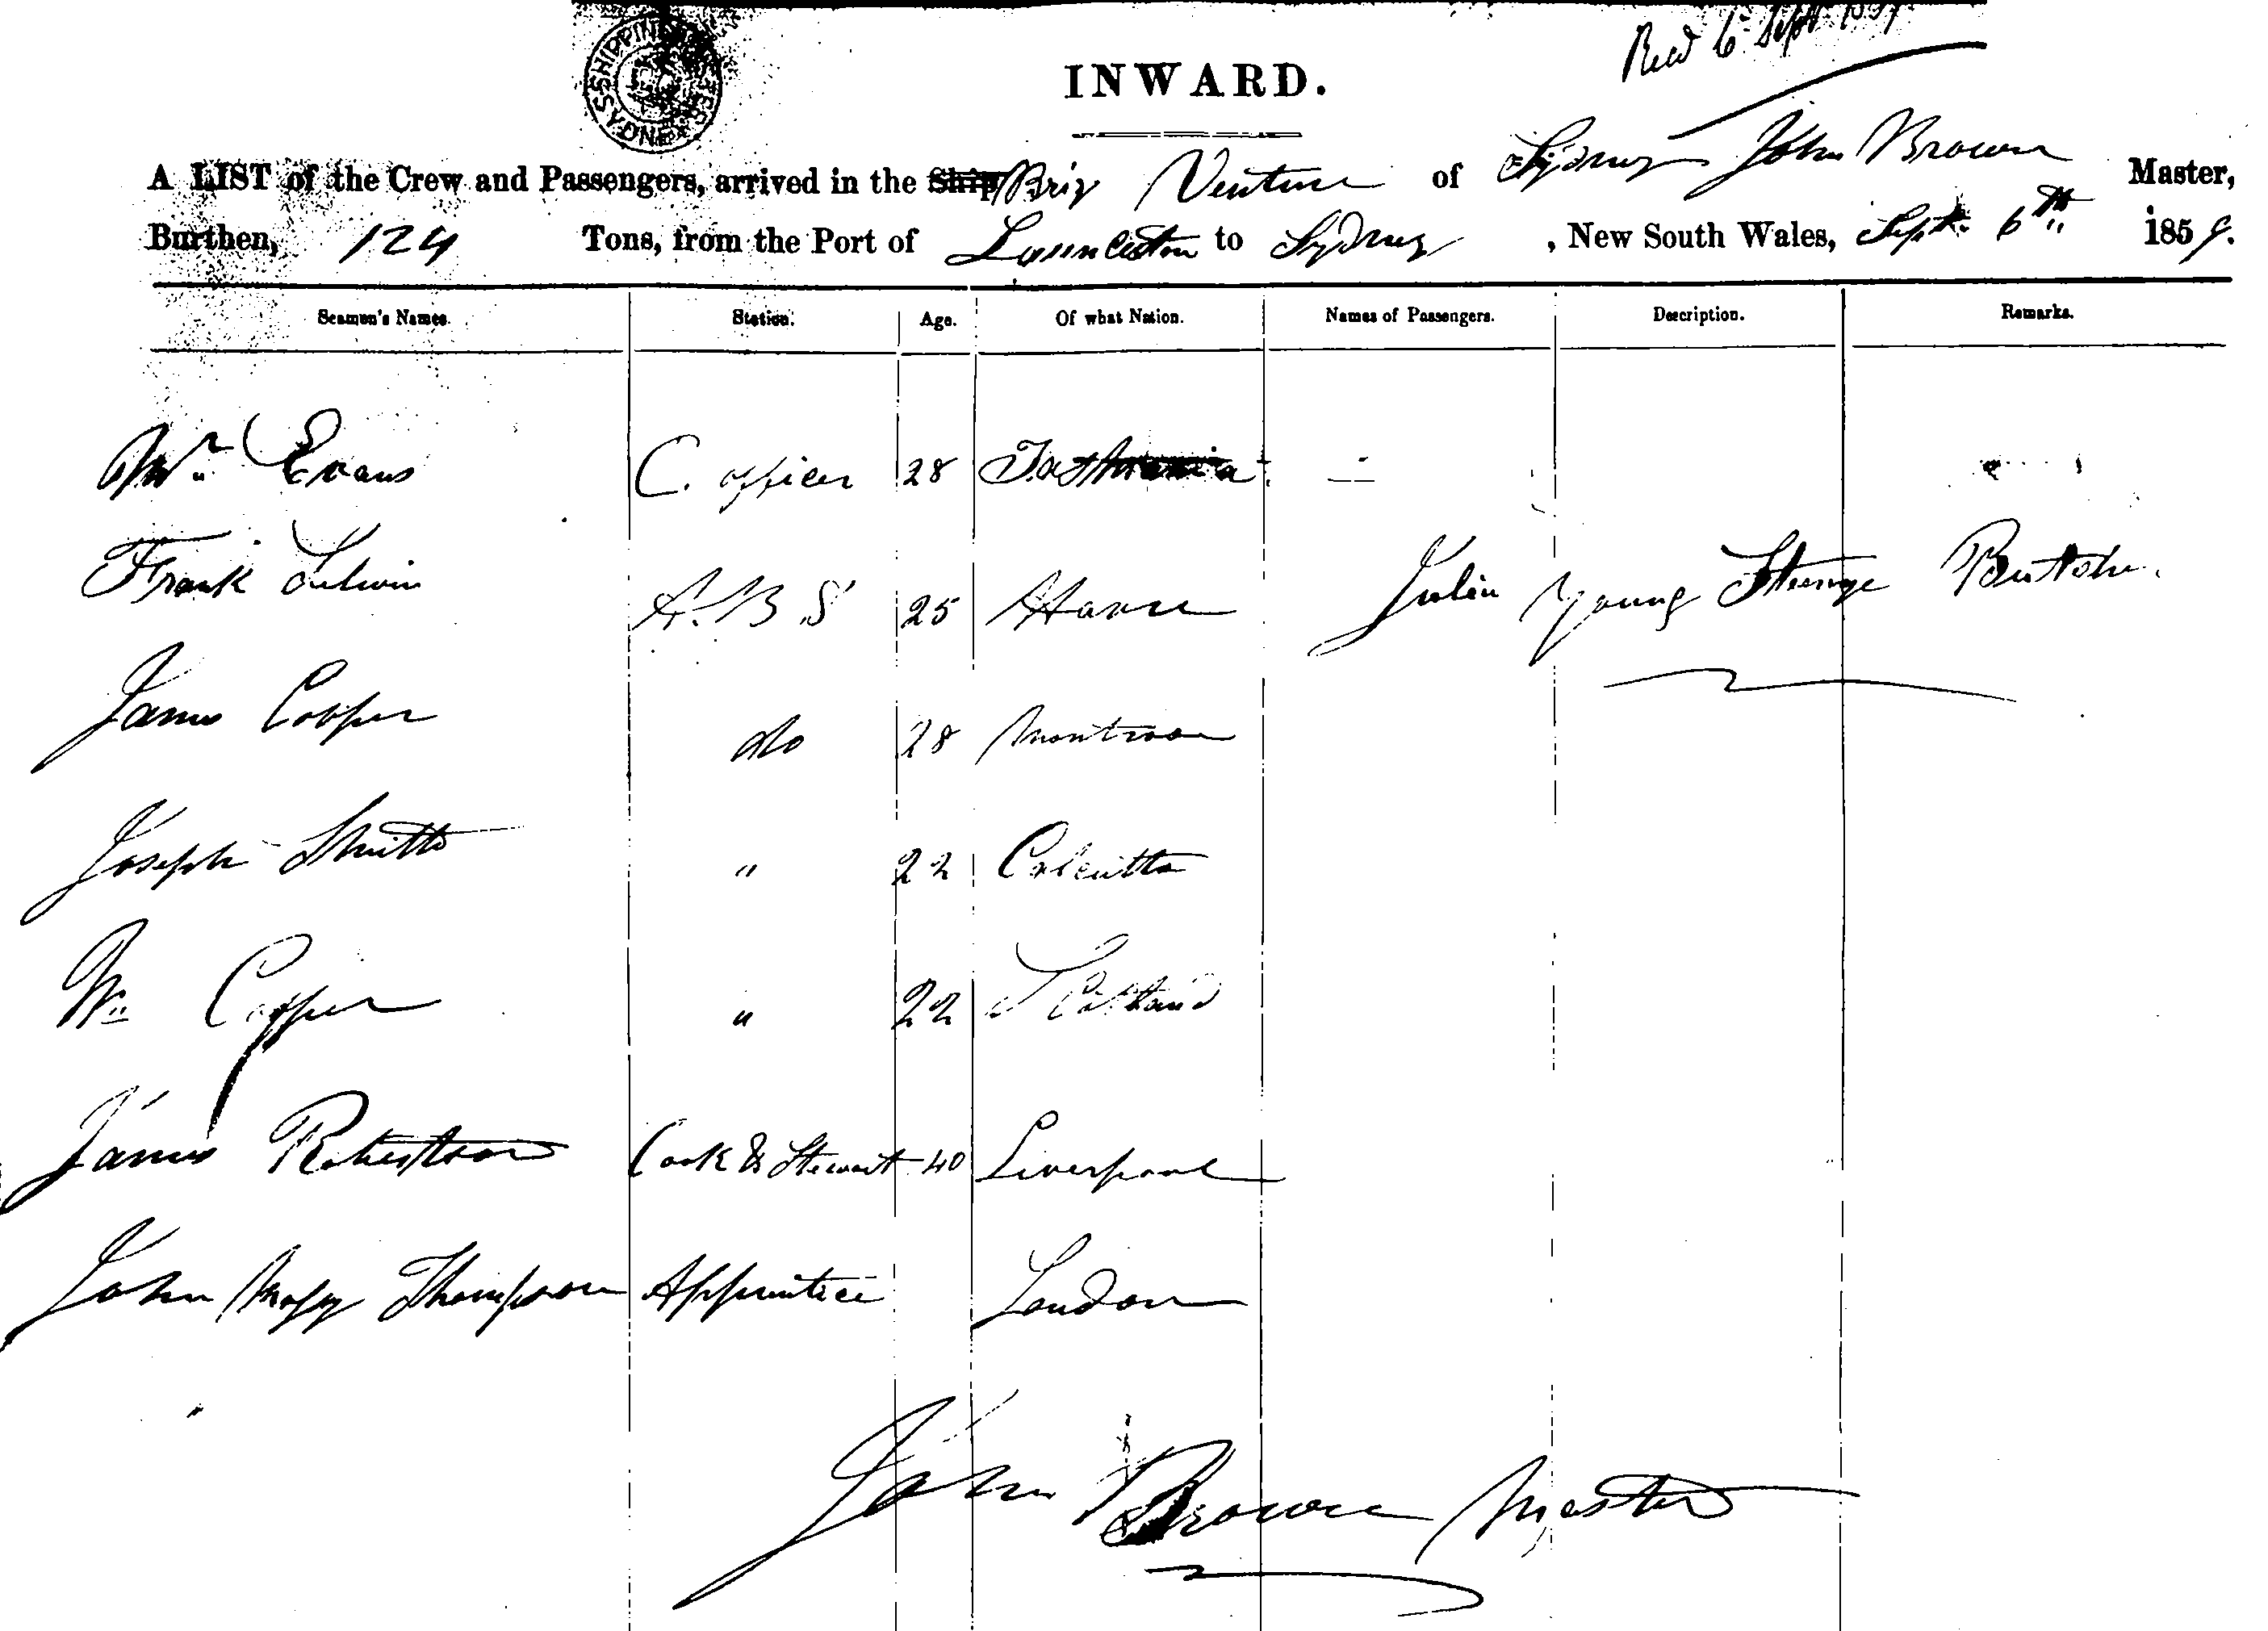 SHIPPING SYDNEY
Recd 6 Sept 1859
INWARD.
A LIST of the Crew and Passengers, arrived in the Ship Brig Venture of Sydney John Brown Master,
Burthen, 124 Tons, from the Port of Launceston to Sydney, New South Wales, Sept. 6th 1859.
Seamen's Names. Station. Age. Of what Nation. Names of Passengers. Description. Remarks.
Wm Evans C. officer 28 Tasmania
Frank A.B.S 25 Havre Julia Young Steerage
James Cooper do 28 Montrose
Joseph Smith " 22 Calcutta
Wm " 22 Scotland
James Robertson Cook & Stewart 40 Liverpool
John Thompson Apprentice London
John Brown Master